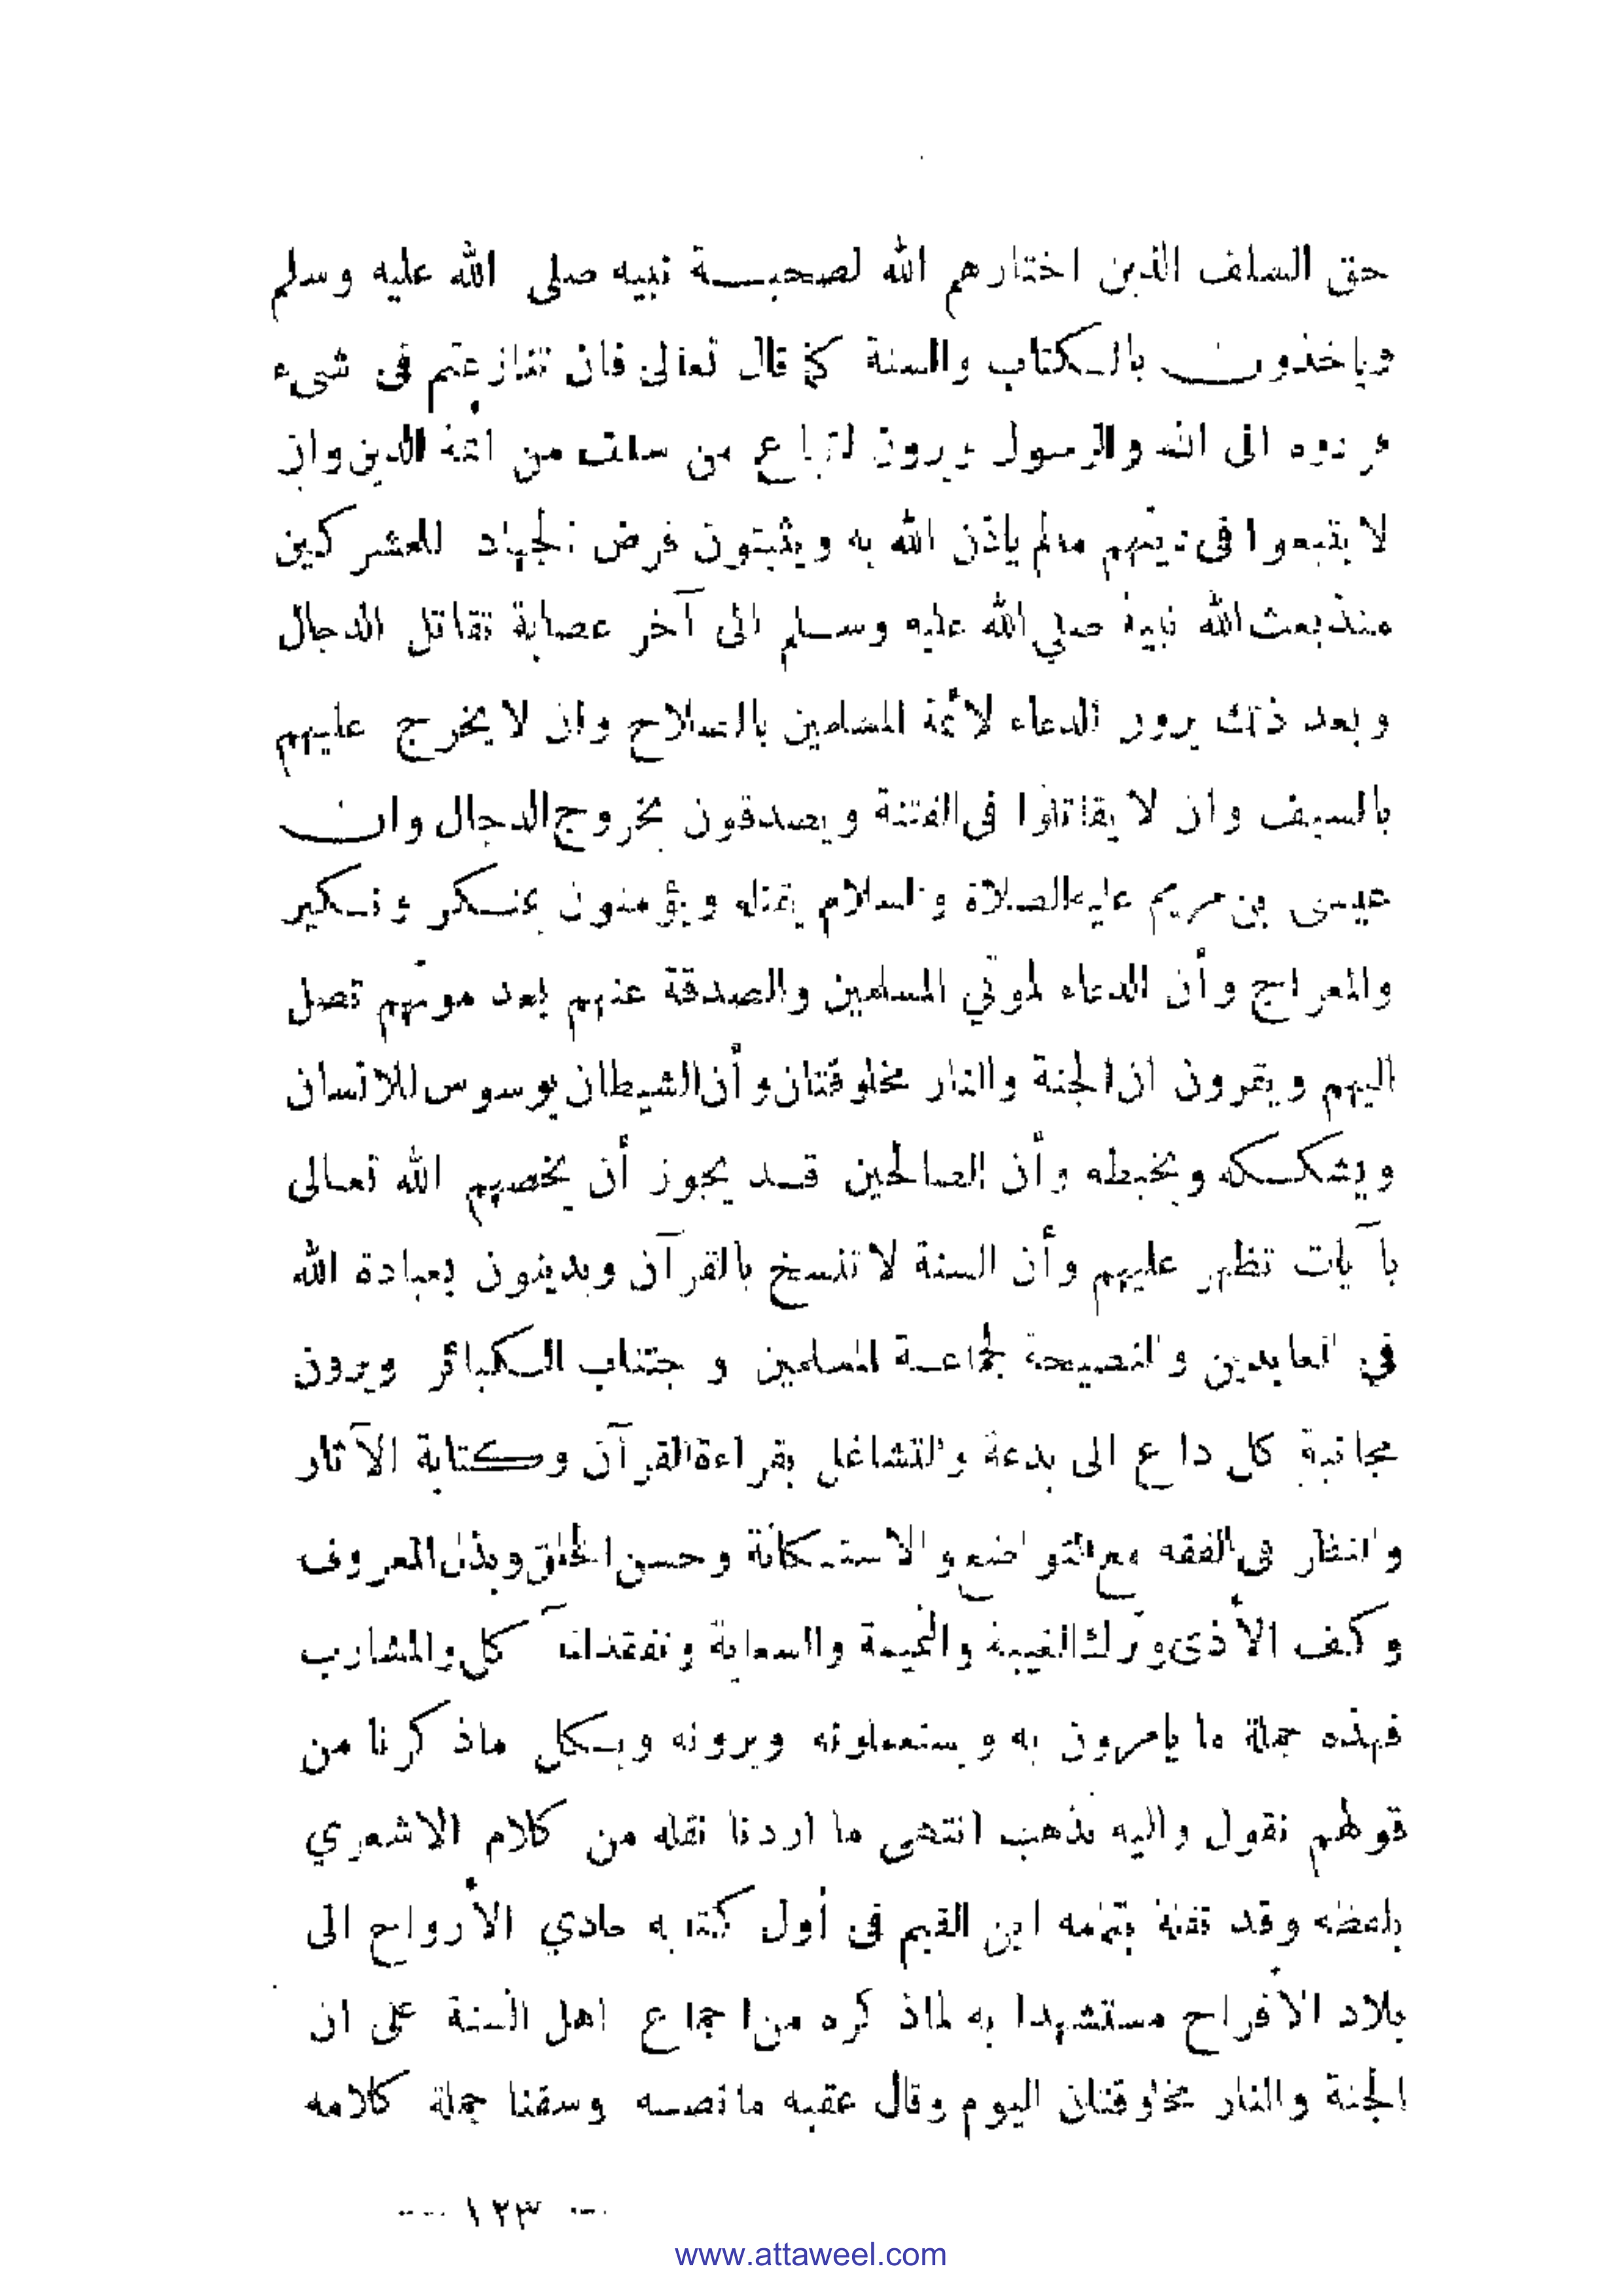 حق السلف الذين اختارهم الله لصحبة نبيه صلى الله عليه وسلم
وياخذون بالكتاب والسنة كما قال تعالى فان تنازعتم فى شىء
فردوه الى الله والرسول ويرون اتباع من سلف من ائمة الدين وان
لا يتبعوا فى دينهم مالم ياذن الله به ويثبتون فرض الجهاد للمشركين
منذ بعث الله نبيه صلي الله عليه وسلم الى آخر عصابة تقاتل الدجال
وبعد ذلك يرون الدعاء لائمة المسلمين بالصلاح وان لا يخرج عليهم
بالسيف وان لا يقاتلوا فى الفتنة ويصدقون بخروج الدجال وان
عيسى بن مريم عليه الصلاة والسلام يقتله ويؤمنون بمنكر ونكير
والمعراج وأن الدعاء لموتي المسلمين والصدقة عنهم بعد موتهم تصل
اليهم ويقرون ان الجنة والنار مخلوقتان وأن الشيطان يوسوس للانسان
ويشككه ويخبطه وأن الصالحين قد يجوز أن يخصهم الله تعالى
بآيات تظهر عليهم وأن السنة لا تنسخ بالقرآن ويدينون بعبادة الله
في العابدين والنصيحة لجماعة المسلمين و جتناب الكبائر ويرون
مجانبة كل داع الى بدعة والتشاغل بقراءة القرآن وكتابة الآثار
والنظار فى الفقه مع التواضع والاستكانة وحسن الخلق وبذل المعروف
وكف الأذى وترك الغيبة والنميمة والسعاية وتفقد المآ كل والمشارب
فهذه جملة ما يامرون به ويستعملونه ويرونه وبكل ماذكرنا من
قولهم نقول واليه نذهب انتهى ما اردنا نقله من كلام الاشعري
بلفظه وقد نقله بتمامه ابن القيم فى أول كتابه حادي الأرواح الى
بلاد الأفراح مستشهدا به لماذكره من اجماع اهل السنة على ان
الجنة والنار مخلوقتان اليوم وقال عقبه مانصه وسقنا جملة كلامه
— ١٢٣ —
www.attaweel.com